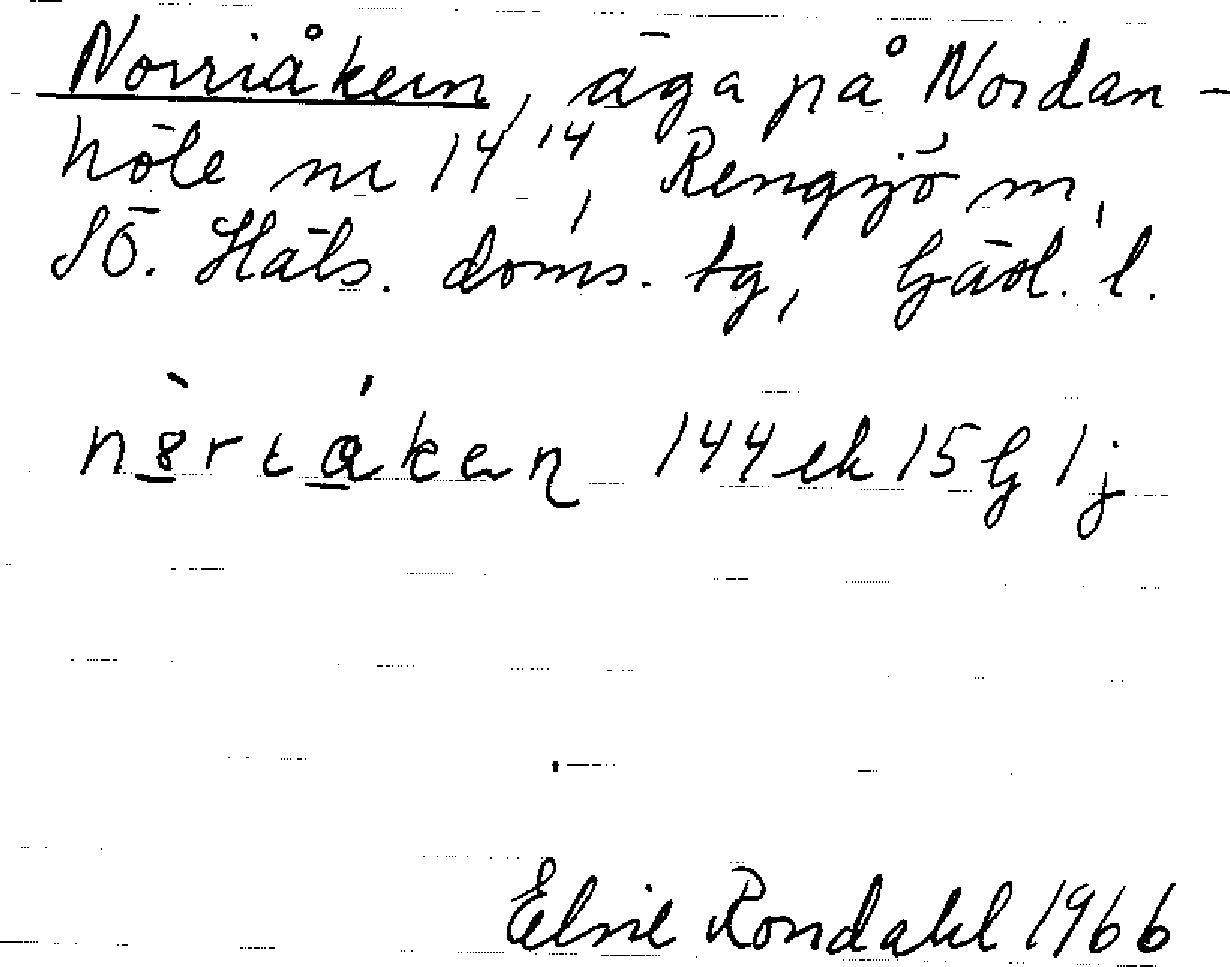 Norriåkern, äga på Nordan-
höle nr 14¹⁴, Rengsjö sn,
SÖ. Häls. doms. tg, Gävl. l.
144 ek 15 g 1 j
Elsie Rondahl 1966